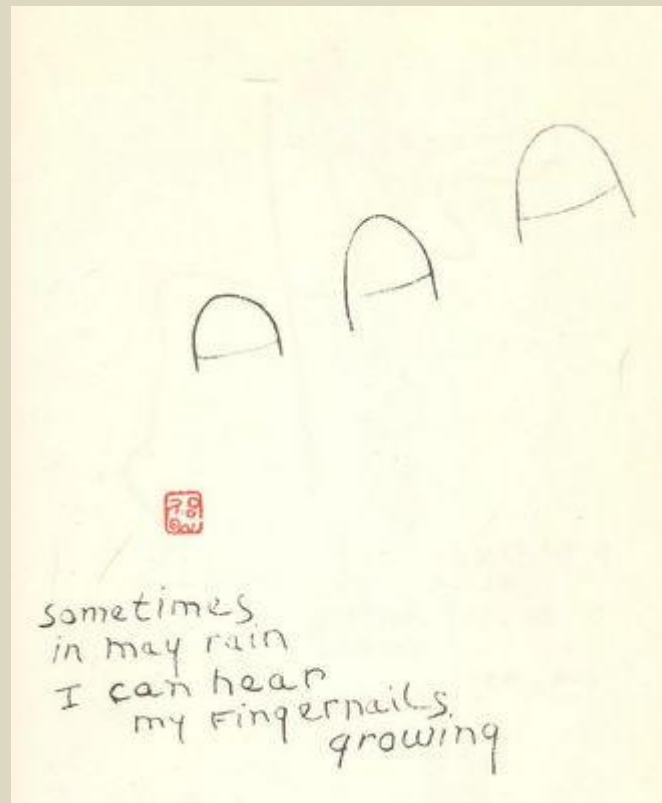 sometimes
in may rain
I can hear
my fingernails
growing